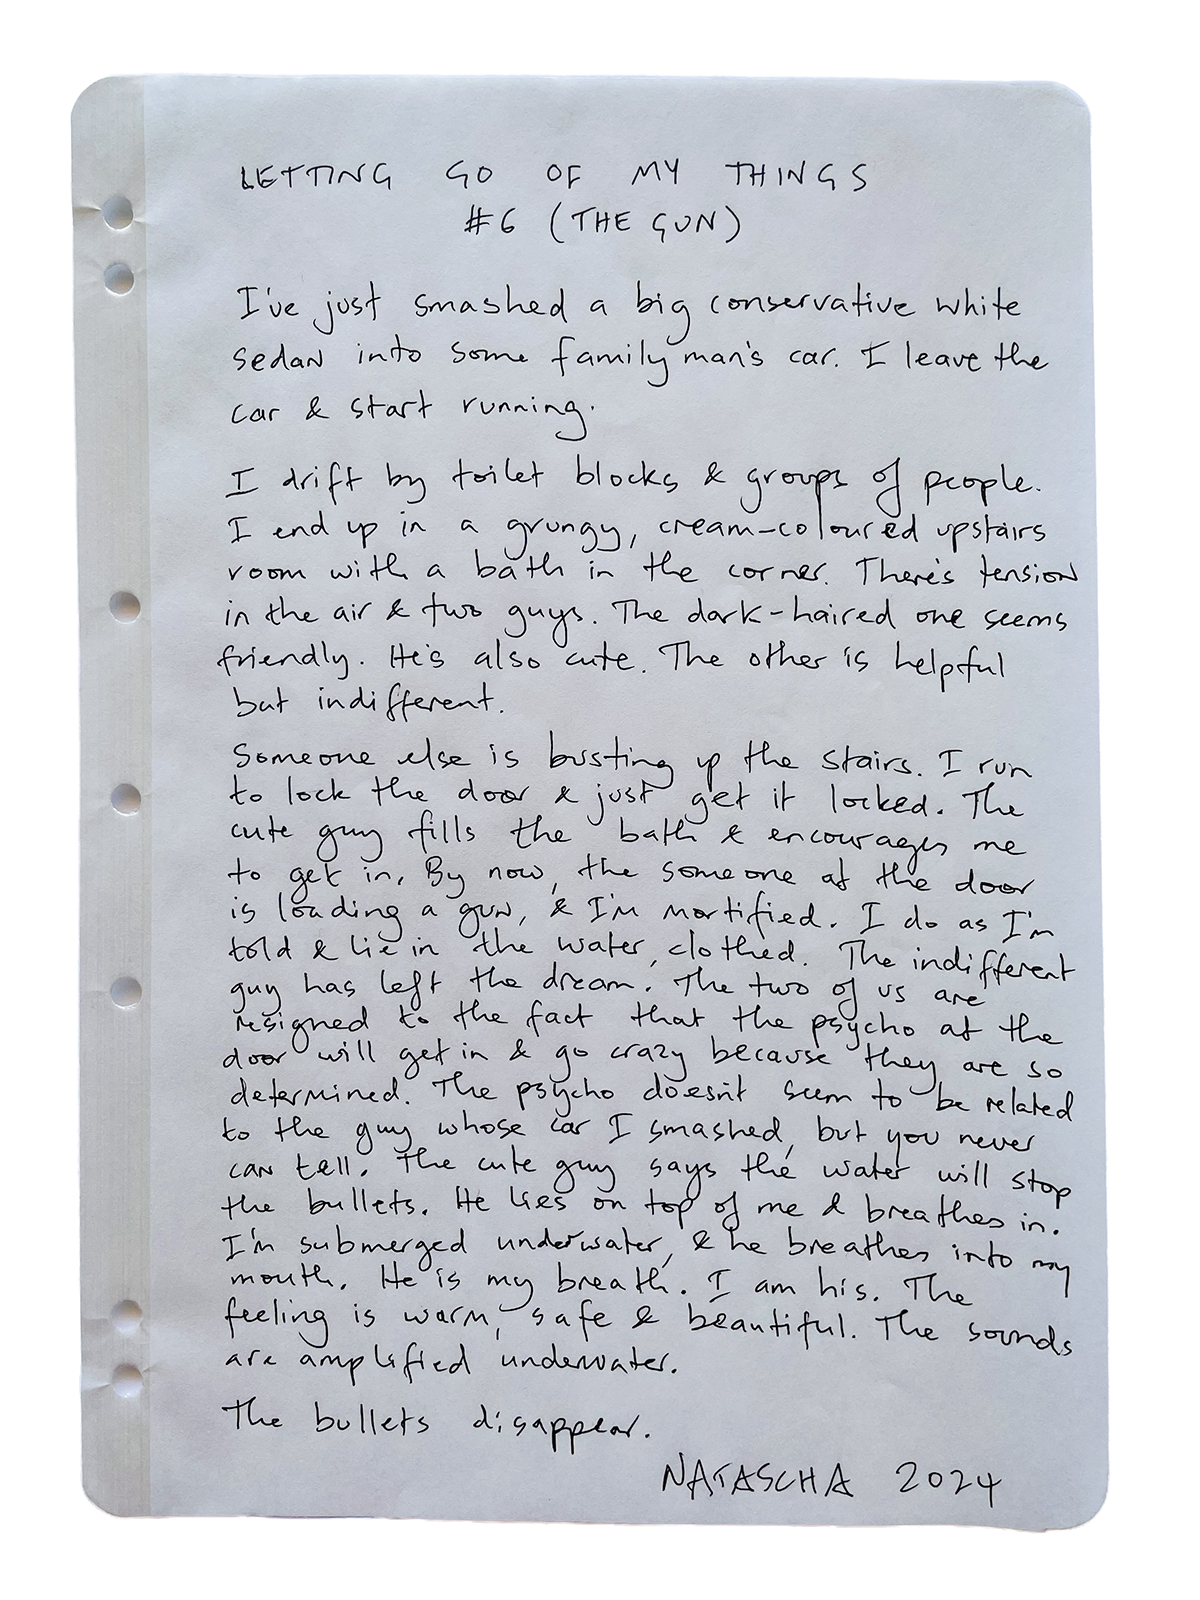 LETTING GO OF MY THINGS
#6 (THE GUN)
I've just smashed a big conservative white
sedan into some family man's car. I leave the
car & start running.
I drift by toilet blocks & groups of people.
I end up in a grungy, cream-coloured upstairs
room with a bath in the corner. There's tension
in the air & two guys. The dark-haired one seems
friendly. He's also cute. The other is helpful
but indifferent.
Someone else is busting up the stairs. I run
to lock the door & just get it locked. The
cute guy fills the bath & encourages me
to get in. By now, the someone at the door
is loading a gun, & I'm mortified. I do as I'm
told & lie in the water, clothed. The indifferent
guy has left the dream. The two of us are
resigned to the fact that the psycho at the
door will get in & go crazy because they are so
determined. The psycho doesn't seem to be related
to the guy whose car I smashed, but you never
can tell. The cute guy says the water will stop
the bullets. He lies on top of me & breathes in.
I'm submerged underwater, & he breathes into my
mouth. He is my breath. I am his. The
feeling is warm, safe & beautiful. The sounds
are amplified underwater.
The bullets disappear.
NATASCHA 2024